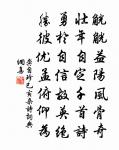 觥觥益陽風骨奇
壯年自定千首詩
勇於自信故英絕
勝彼優孟俯仰為
龔自珍己亥雜詩詞典